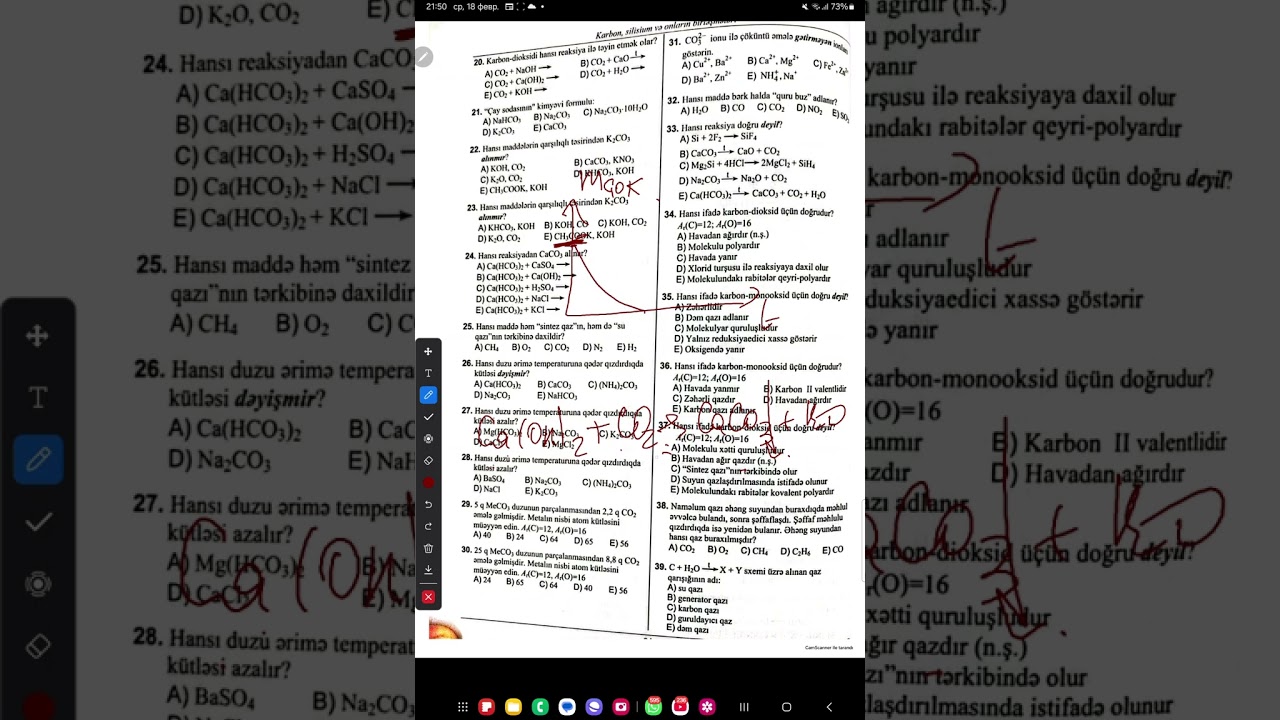 21:50 ср, 18 февр.
73%
Karbon, silisium və onların birləşmələri
20. Karbon-dioksidi hansı reaksiya ilə təyin etmək olar?
A) CO₂ + NaOH →
B) CO₂ + CaO →ᵗ
C) CO₂ + Ca(OH)₂ →
D) CO₂ + H₂O →
E) CO₂ + KOH →
21. "Çay sodasının" kimyəvi formulu:
A) NaHCO₃ B) Na₂CO₃ C) Na₂CO₃·10H₂O
D) K₂CO₃ E) CaCO₃
22. Hansı maddələrin qarşılıqlı təsirindən K₂CO₃
alınmır?
A) KOH, CO₂ B) CaCO₃, KNO₃
C) K₂O, CO₂ D) KHCO₃, KOH
E) CH₃COOK, KOH
23. Hansı maddələrin qarşılıqlı təsirindən K₂CO₃
alınmır?
A) KHCO₃, KOH B) KOH, CO C) KOH, CO₂
D) K₂O, CO₂ E) CH₃COOK, KOH
24. Hansı reaksiyadan CaCO₃ alınır?
A) Ca(HCO₃)₂ + CaSO₄ →
B) Ca(HCO₃)₂ + Ca(OH)₂ →
C) Ca(HCO₃)₂ + H₂SO₄ →
D) Ca(HCO₃)₂ + NaCl →
E) Ca(HCO₃)₂ + KCl →
25. Hansı maddə həm "sintez qaz"ın, həm də "su
qazı"nın tərkibinə daxildir?
A) CH₄ B) O₂ C) CO₂ D) N₂ E) H₂
26. Hansı duzu ərimə temperaturuna qədər qızdırdıqda
kütləsi dəyişmir?
A) Ca(HCO₃)₂ B) CaCO₃ C) (NH₄)₂CO₃
D) Na₂CO₃ E) NaHCO₃
27. Hansı duzu ərimə temperaturuna qədər qızdırdıqda
kütləsi azalır?
A) Mg(HCO₃)₂ B) Na₂CO₃ C) K₂CO₃
D) CaCl₂ E) MgCl₂
28. Hansı duzu ərimə temperaturuna qədər qızdırdıqda
kütləsi azalır?
A) BaSO₄ B) Na₂CO₃ C) (NH₄)₂CO₃
D) NaCl E) K₂CO₃
29. 5 q MeCO₃ duzunun parçalanmasından 2,2 q CO₂
əmələ gəlmişdir. Metalın nisbi atom kütləsini
müəyyən edin. Aᵣ(C)=12, Aᵣ(O)=16
A) 40 B) 24 C) 64 D) 65 E) 56
30. 25 q MeCO₃ duzunun parçalanmasından 8,8 q CO₂
əmələ gəlmişdir. Metalın nisbi atom kütləsini
müəyyən edin. Aᵣ(C)=12, Aᵣ(O)=16
A) 24 B) 65 C) 64 D) 40 E) 56
31. CO₃²⁻ ionu ilə çöküntü əmələ gətirməyən ionları
göstərin.
A) Cu²⁺, Ba²⁺ B) Ca²⁺, Mg²⁺ C) Fe²⁺, Zn²⁺
D) Ba²⁺, Zn²⁺ E) NH₄⁺, Na⁺
32. Hansı maddə bərk halda "quru buz" adlanır?
A) H₂O B) CO C) CO₂ D) NO₂ E) SO₂
33. Hansı reaksiya doğru deyil?
A) Si + 2F₂ → SiF₄
B) CaCO₃ →ᵗ CaO + CO₂
C) Mg₂Si + 4HCl → 2MgCl₂ + SiH₄
D) Na₂CO₃ →ᵗ Na₂O + CO₂
E) Ca(HCO₃)₂ →ᵗ CaCO₃ + CO₂ + H₂O
34. Hansı ifadə karbon-dioksid üçün doğrudur?
Aᵣ(C)=12; Aᵣ(O)=16
A) Havadan ağırdır (n.ş.)
B) Molekulu polyardır
C) Havada yanır
D) Xlorid turşusu ilə reaksiyaya daxil olur
E) Molekulundakı rabitələr qeyri-polyardır
35. Hansı ifadə karbon-monooksid üçün doğru deyil?
A) Zəhərlidir
B) Dəm qazı adlanır
C) Molekulyar quruluşludur
D) Yalnız reduksiyaedici xassə göstərir
E) Oksigendə yanır
36. Hansı ifadə karbon-monooksid üçün doğrudur?
Aᵣ(C)=12; Aᵣ(O)=16
A) Havada yanmır B) Karbon II valentlidir
C) Zəhərli qazdır D) Havadan ağırdır
E) Karbon qazı adlanır
37. Hansı ifadə karbon-dioksid üçün doğru deyil?
Aᵣ(C)=12; Aᵣ(O)=16
A) Molekulu xətti quruluşludur
B) Havadan ağır qazdır (n.ş.)
C) "Sintez qazı"nın tərkibində olur
D) Suyun qazlaşdırılmasında istifadə olunur
E) Molekulundakı rabitələr kovalent polyardır
38. Naməlum qazı əhəng suyundan buraxdıqda məhlul
əvvəlcə bulandı, sonra şəffaflaşdı. Şəffaf məhlulu
qızdırdıqda isə yenidən bulanır. Əhəng suyundan
hansı qaz buraxılmışdır?
A) CO₂ B) O₂ C) CH₄ D) C₂H₆ E) CO
39. C + H₂O →ᵗ X + Y sxemi üzrə alınan qaz
qarışığının adı:
A) su qazı
B) generator qazı
C) karbon qazı
D) guruldayıcı qaz
E) dəm qazı
CamScanner ilə tarandı
t
Ca(OH)₂ + CO₂ =